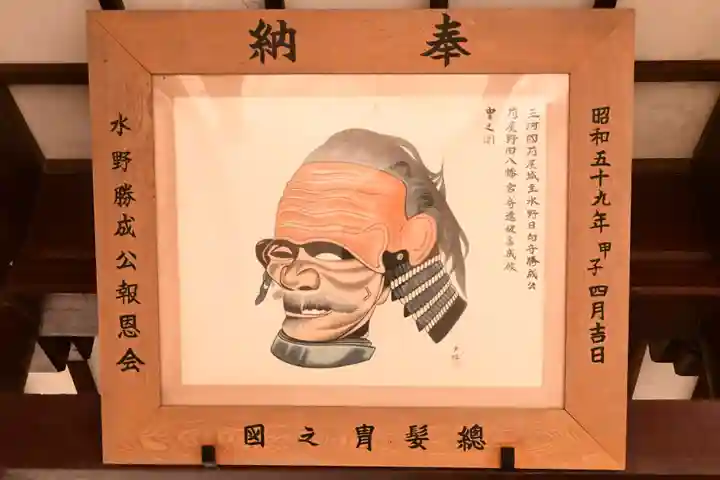 奉納
昭和五十九年 甲子 四月吉日
三河国苅屋城主水野日向守勝成公
苅屋野田八幡宮寄進
冑之図
總髪冑之図
水野勝成公報恩会